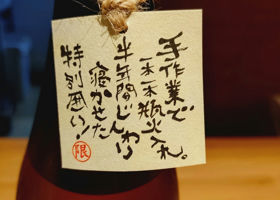 手作業で
一本一本瓶火入れ。
半年間じんわり
寝かせた
特別囲い!
限